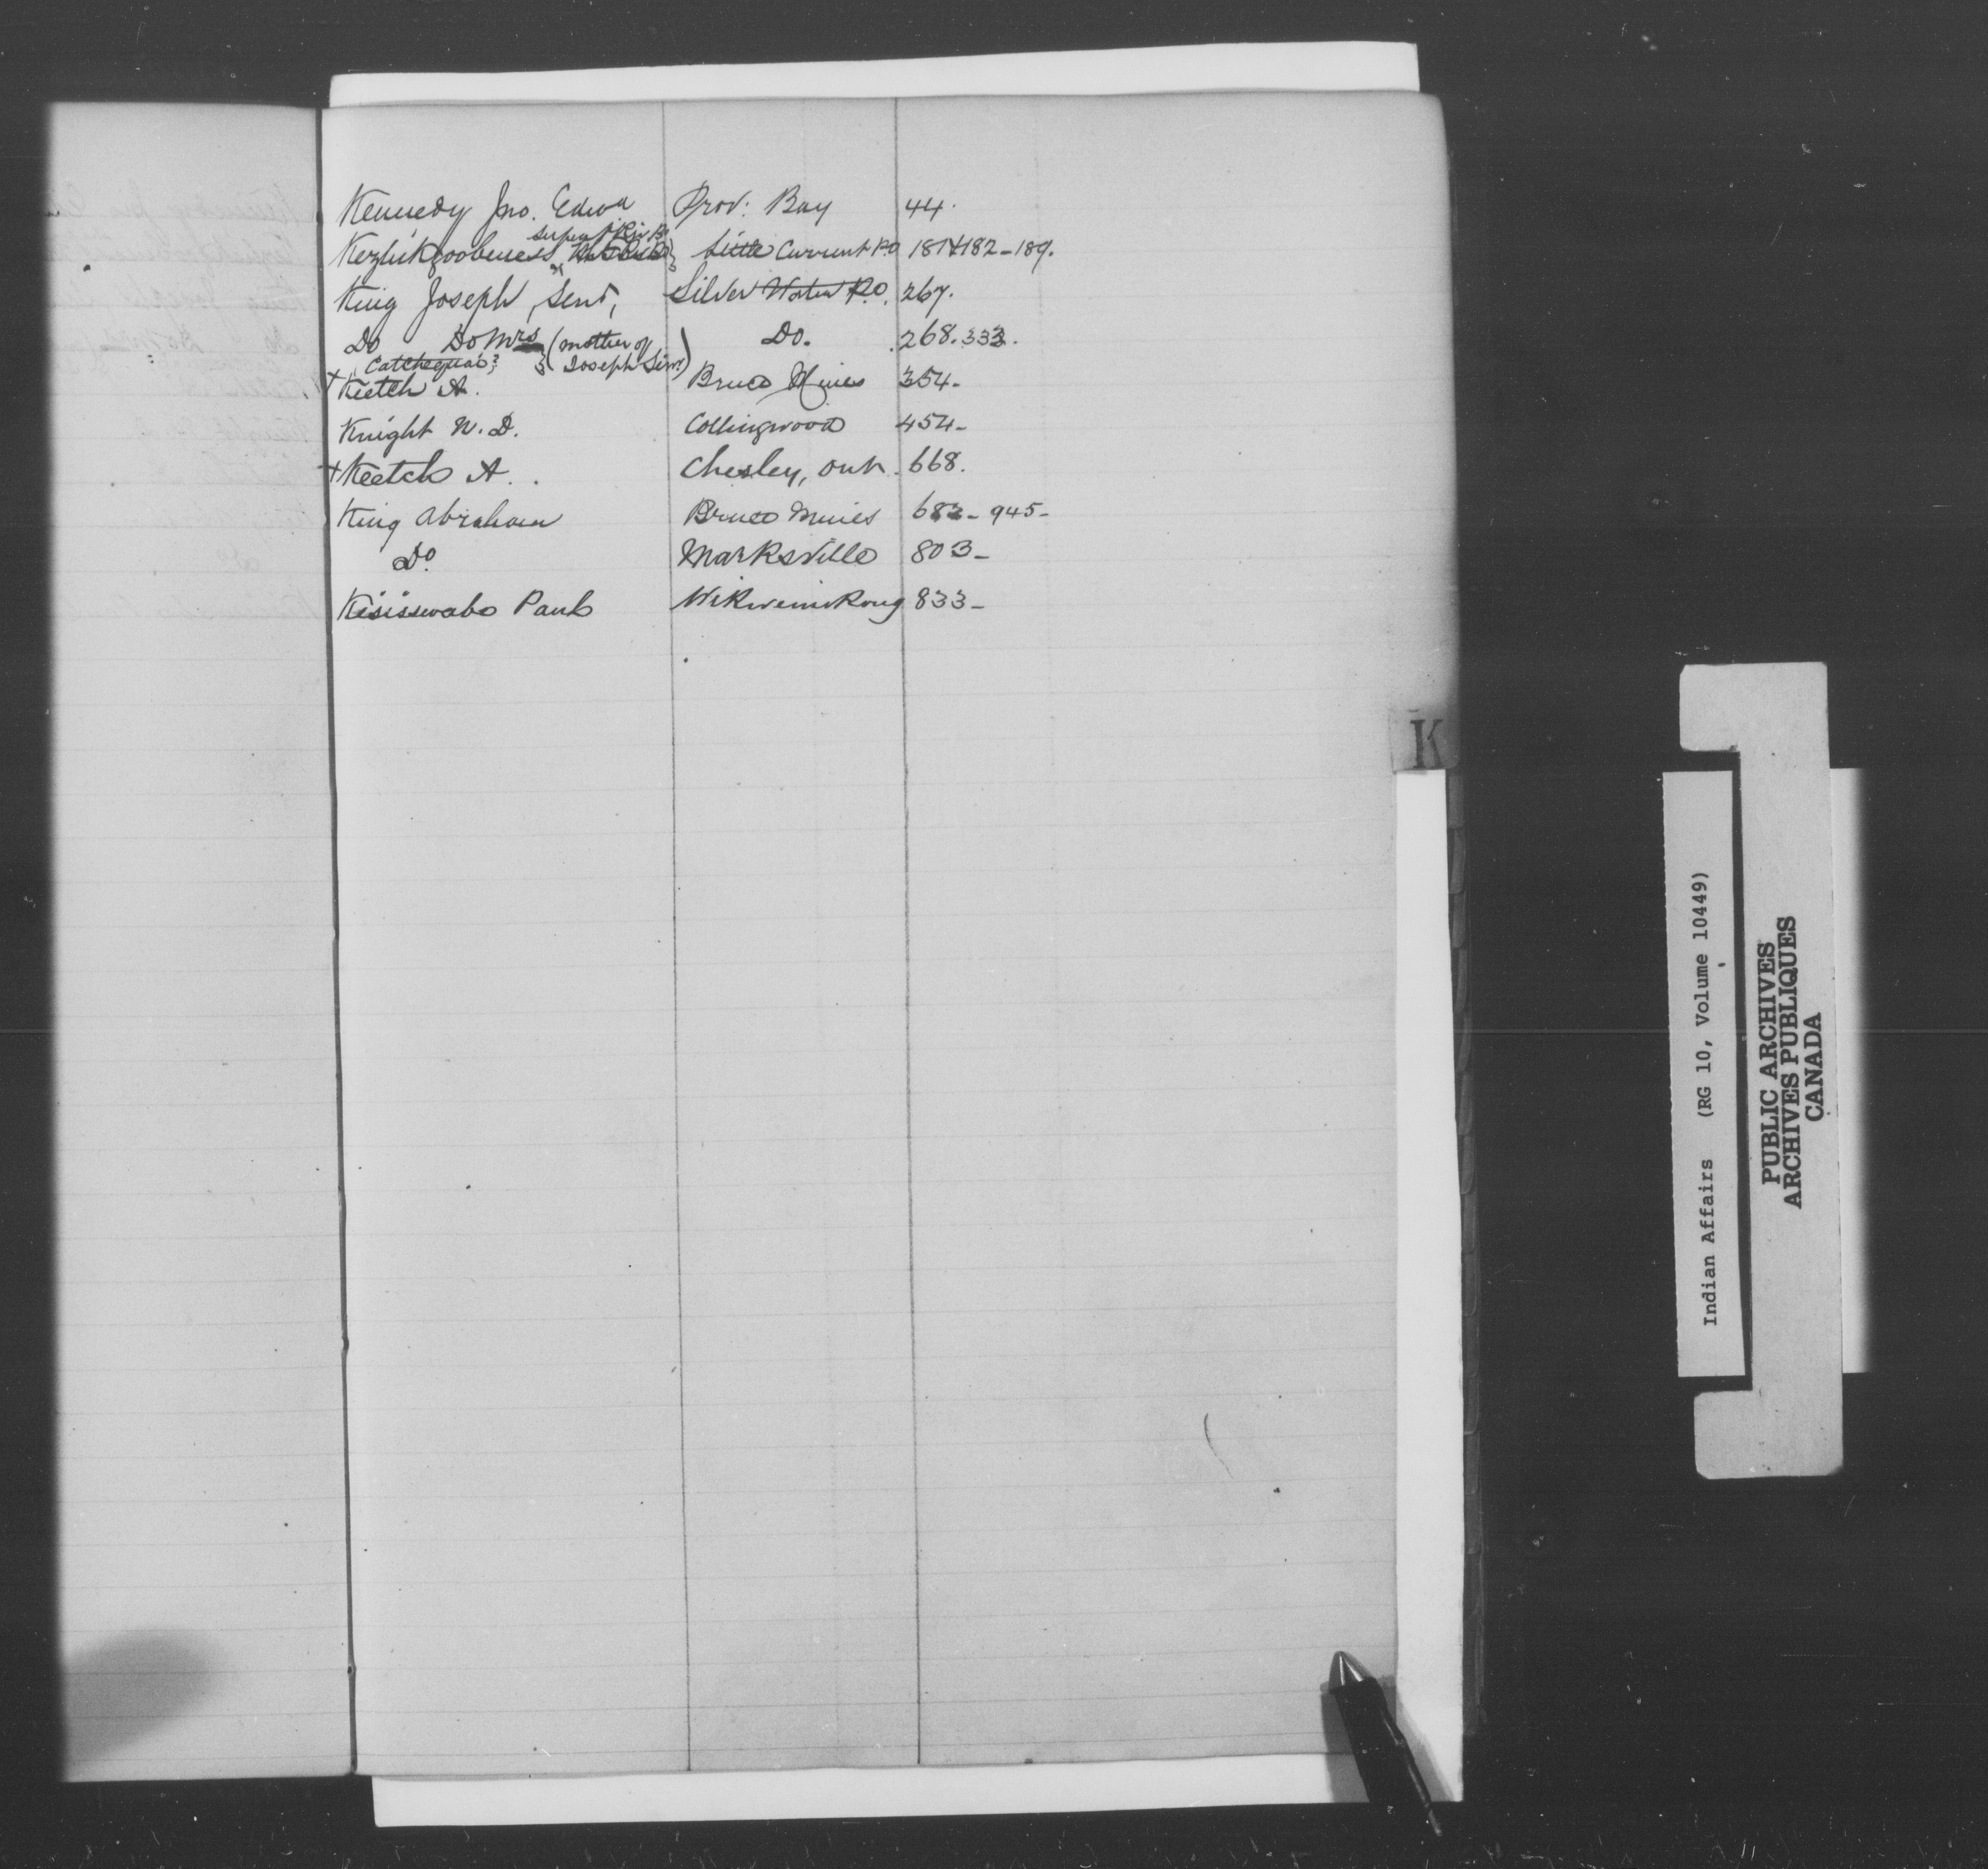 Kennedy Jno. Edwd Prov: Bay 44.
Serpent Riv Bd
Kezhikgoobeness Little Current P.O 181+182-189.
King Joseph, Senr, Silver Water P.O. 267.
Do Do Mrs (mother of Do. 268.333.
Catchequa? Joseph Senr)
+ Keetch A. Bruce Mines 354-
Knight N. D. Collingwood 454-
+ Keetch A. Chesley, Ont. 668.
King Abraham Bruce Mines 682- 945-
Do Marksville 803-
Kisisswabo Paul Wikwemikong 833-
K
Indian Affairs (RG 10, Volume 10449)
PUBLIC ARCHIVES
ARCHIVES PUBLIQUES
CANADA